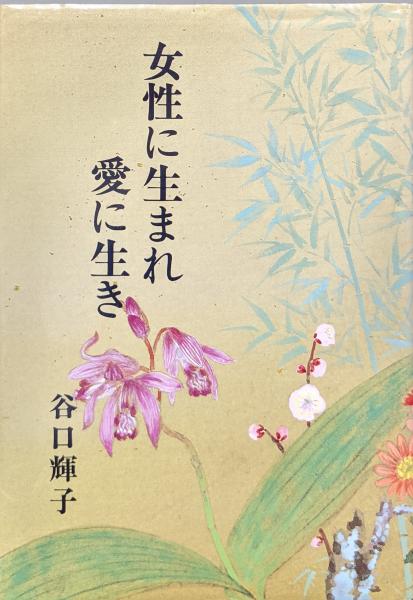 女性に生まれ
愛に生き
谷口輝子